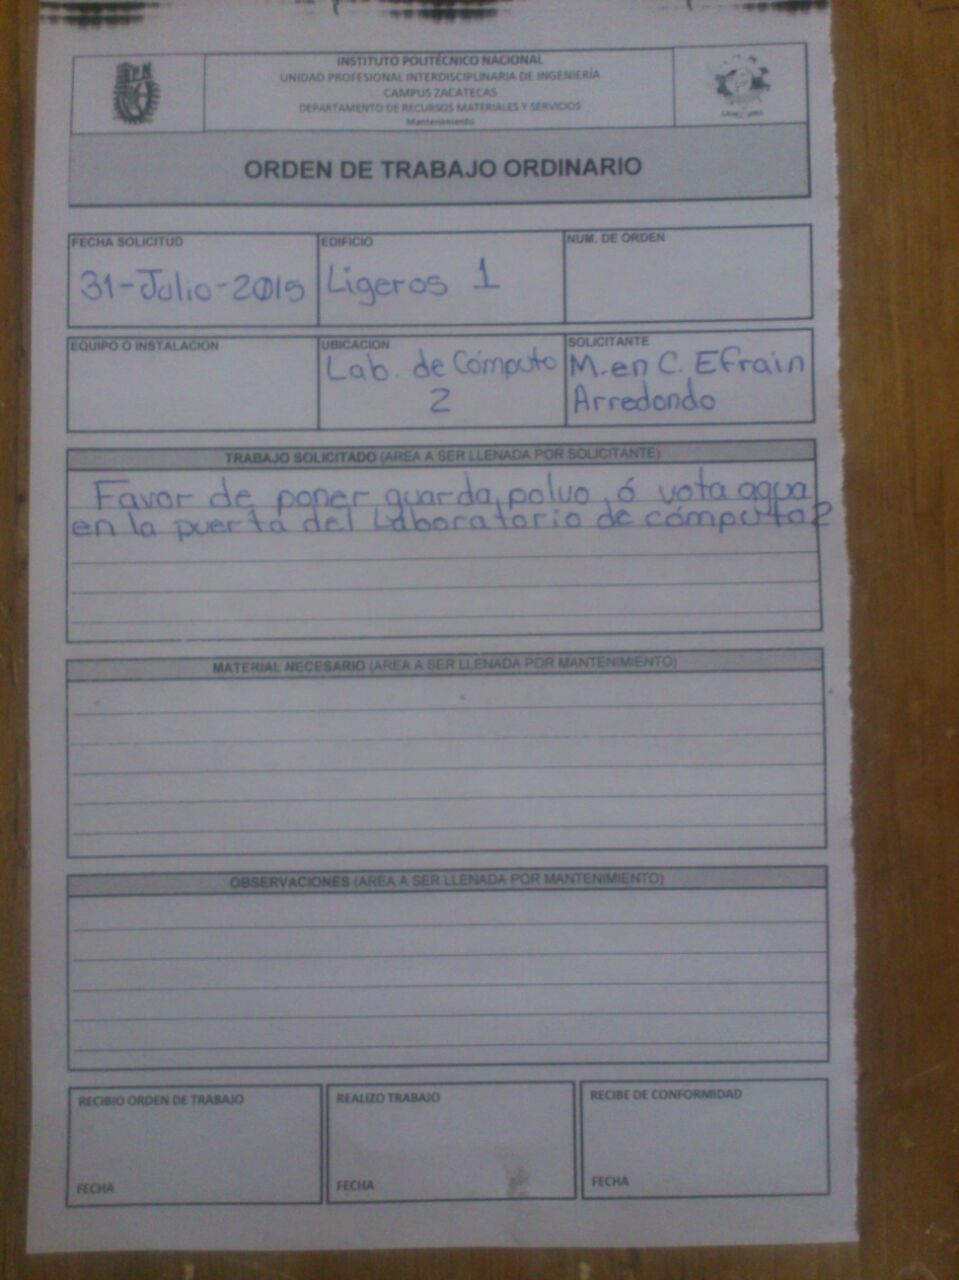 INSTITUTO POLITÉCNICO NACIONAL
UNIDAD PROFESIONAL INTERDISCIPLINARIA DE INGENIERÍA
CAMPUS ZACATECAS
DEPARTAMENTO DE RECURSOS MATERIALES Y SERVICIOS
Mantenimiento
ORDEN DE TRABAJO ORDINARIO
FECHA SOLICITUD
31-Julio-2015
EDIFICIO
Ligeros 1
NUM. DE ORDEN
EQUIPO O INSTALACION
UBICACION
Lab. de Cómputo
2
SOLICITANTE
M. en C. Efrain
Arredondo
TRABAJO SOLICITADO (AREA A SER LLENADA POR SOLICITANTE)
Favor de poner guarda polvo ó vota agua
en la puerta del Laboratorio de cómputo 2
MATERIAL NECESARIO (AREA A SER LLENADA POR MANTENIMIENTO)
OBSERVACIONES (AREA A SER LLENADA POR MANTENIMIENTO)
RECIBIO ORDEN DE TRABAJO
FECHA
REALIZO TRABAJO
FECHA
RECIBE DE CONFORMIDAD
FECHA